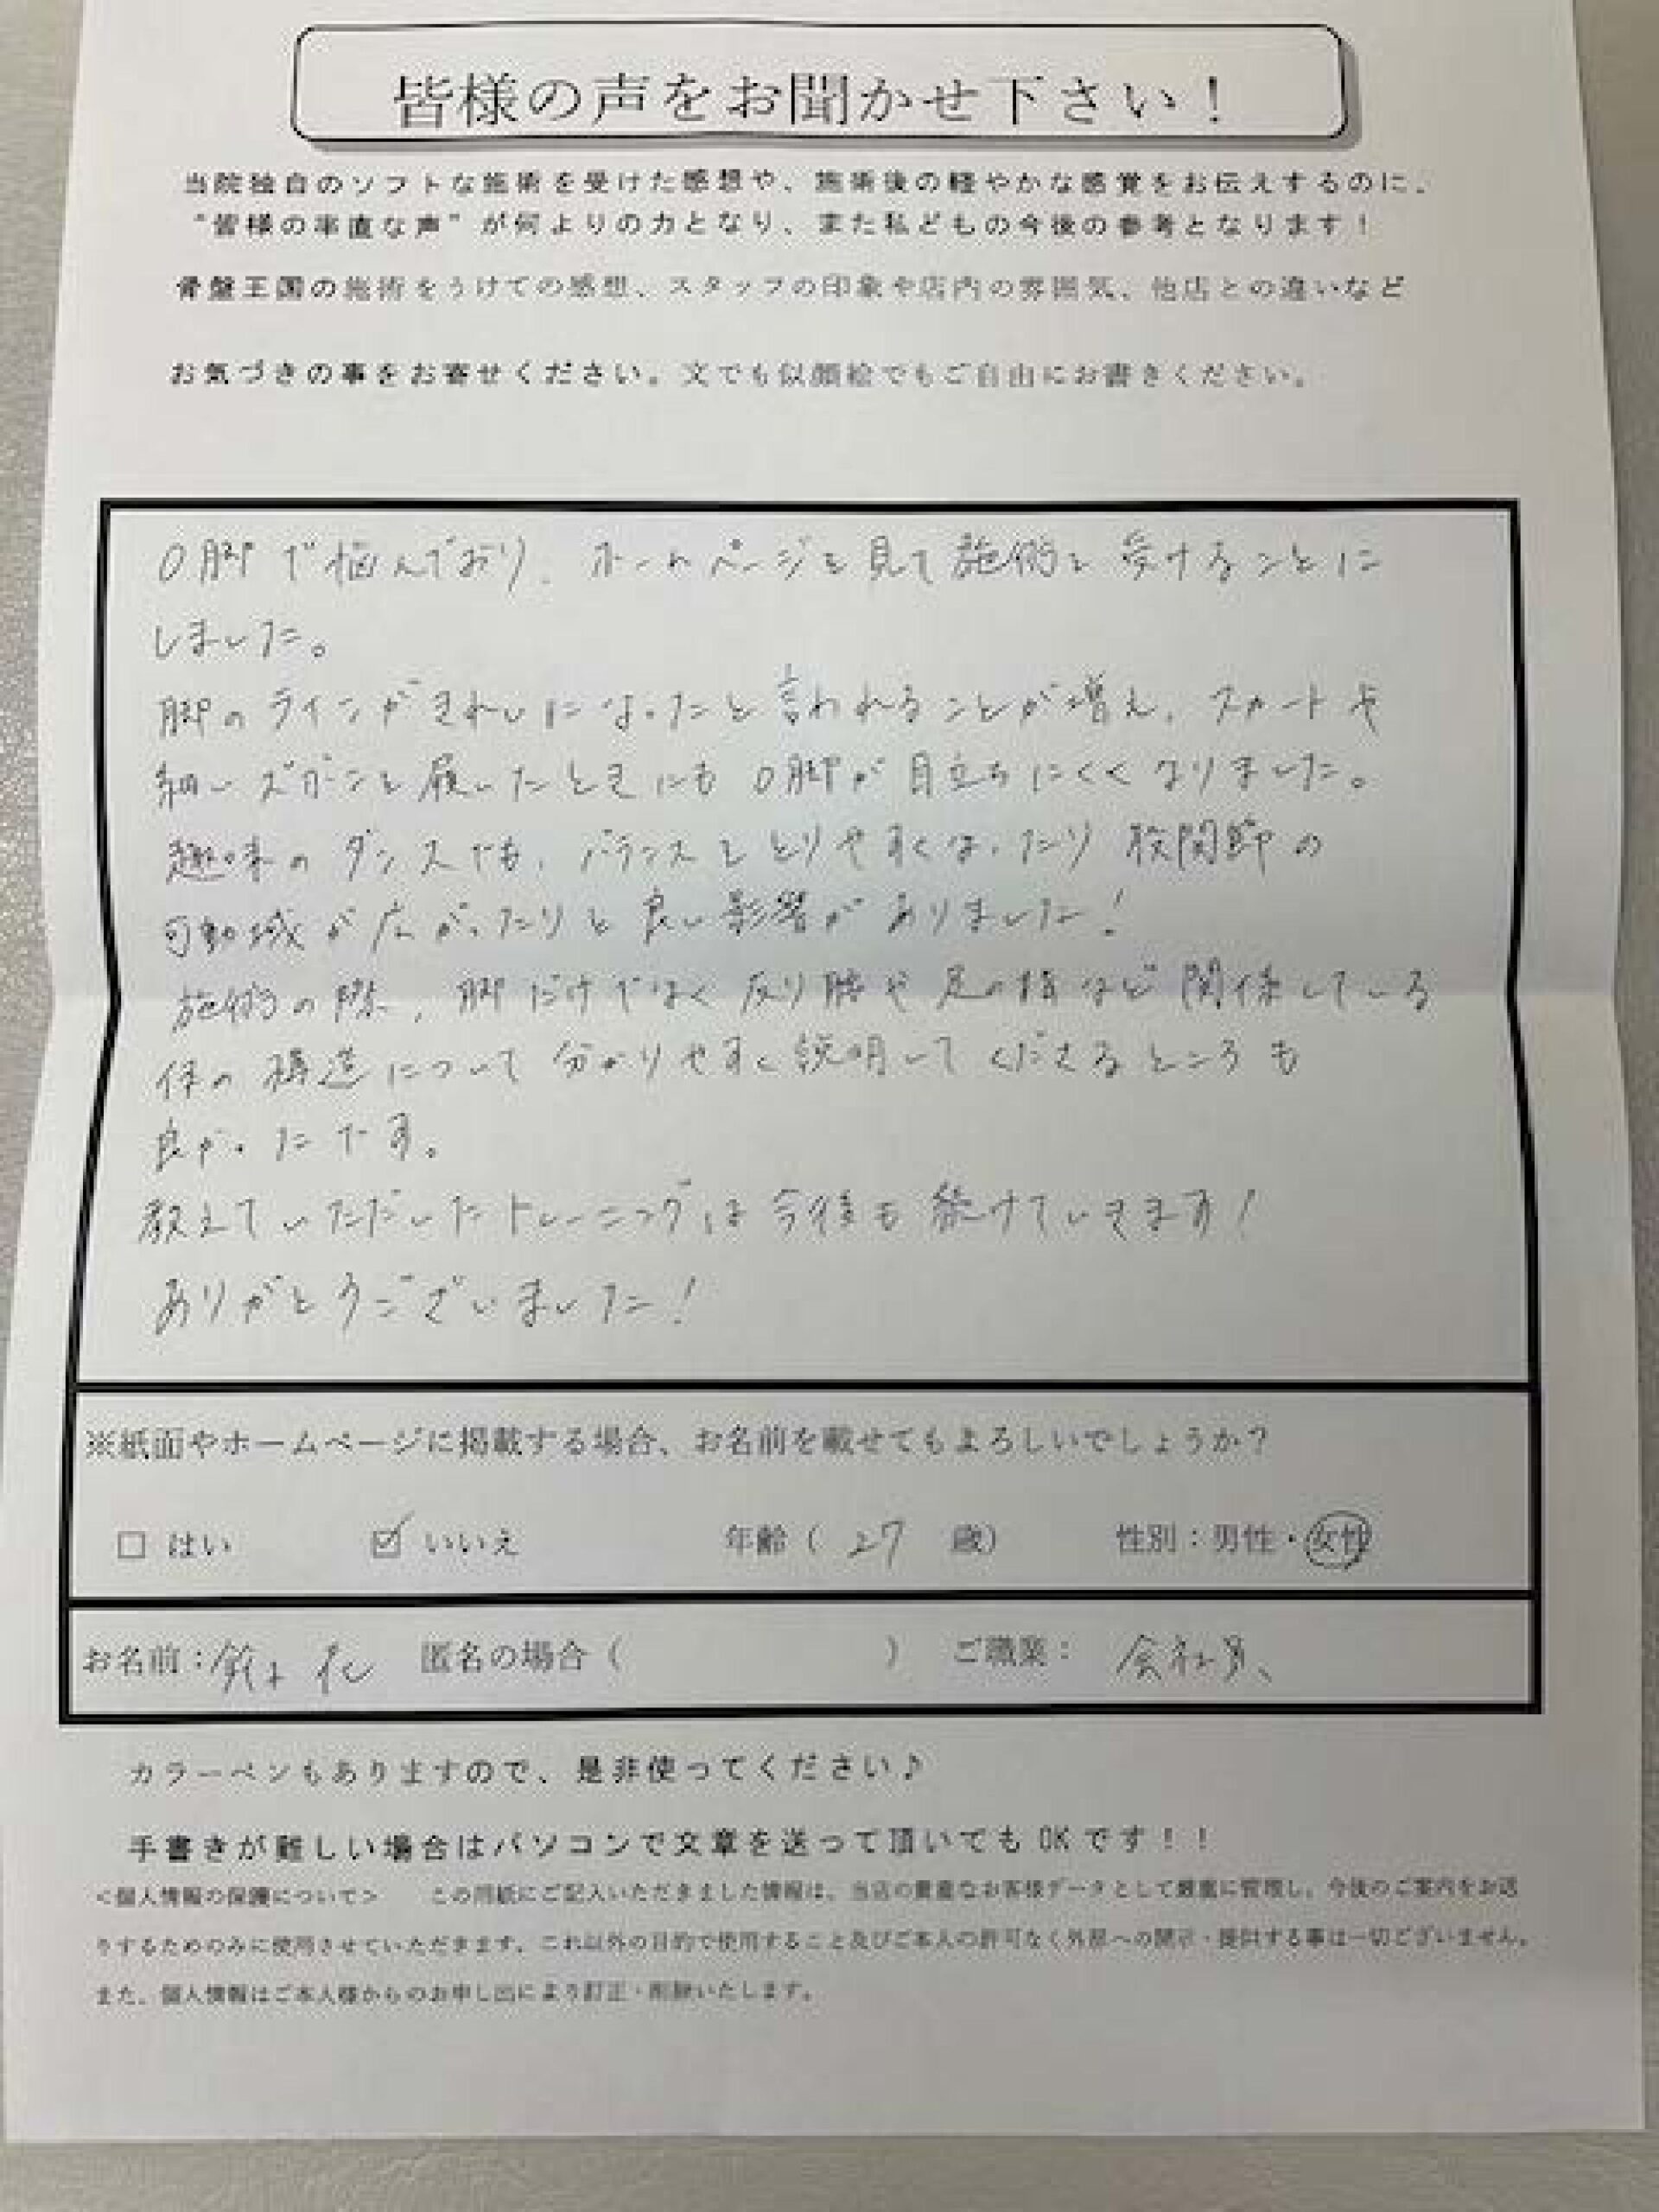 皆様の声をお聞かせ下さい！
当院独自のソフトな施術を受けた感想や、施術後の軽やかな感覚をお伝えするのに、
“皆様の率直な声”が何よりの力となり、また私どもの今後の参考となります！
骨盤王国の施術をうけての感想、スタッフの印象や店内の雰囲気、他店との違いなど
お気づきの事をお寄せください。文でも似顔絵でもご自由にお書きください。
O脚で悩んでおり、ホームページを見て施術を受けることに
しました。
脚のラインがきれいになったと言われることが増え、スカートや
細いズボンを履いたときにもO脚が目立ちにくくなりました。
趣味のダンスでも、バランスをとりやすくなったり股関節の
可動域が広がったりと良い影響がありました！
施術の際、脚だけではなく反り腰や足の指など関係している
体の構造について分かりやすく説明してくださるところも
良かったです。
教えていただいたトレーニングは今後も続けていきます！
ありがとうございました！
※紙面やホームページに掲載する場合、お名前を載せてもよろしいでしょうか？
□ はい ☑ いいえ 年齢（ 27 歳） 性別：男性・女性
お名前： 匿名の場合（ ） ご職業： 会社員
カラーペンもありますので、是非使ってください♪
手書きが難しい場合はパソコンで文章を送って頂いてもOKです！！
＜個人情報の保護について＞ この用紙にご記入いただきました情報は、当店の貴重なお客様データとして厳重に管理し、今後のご案内をお送
りするためのみに使用させていただきます。これ以外の目的で使用すること及びご本人の許可なく外部への開示・提供する事は一切ございません。
また、個人情報はご本人様からのお申し出により訂正・削除いたします。